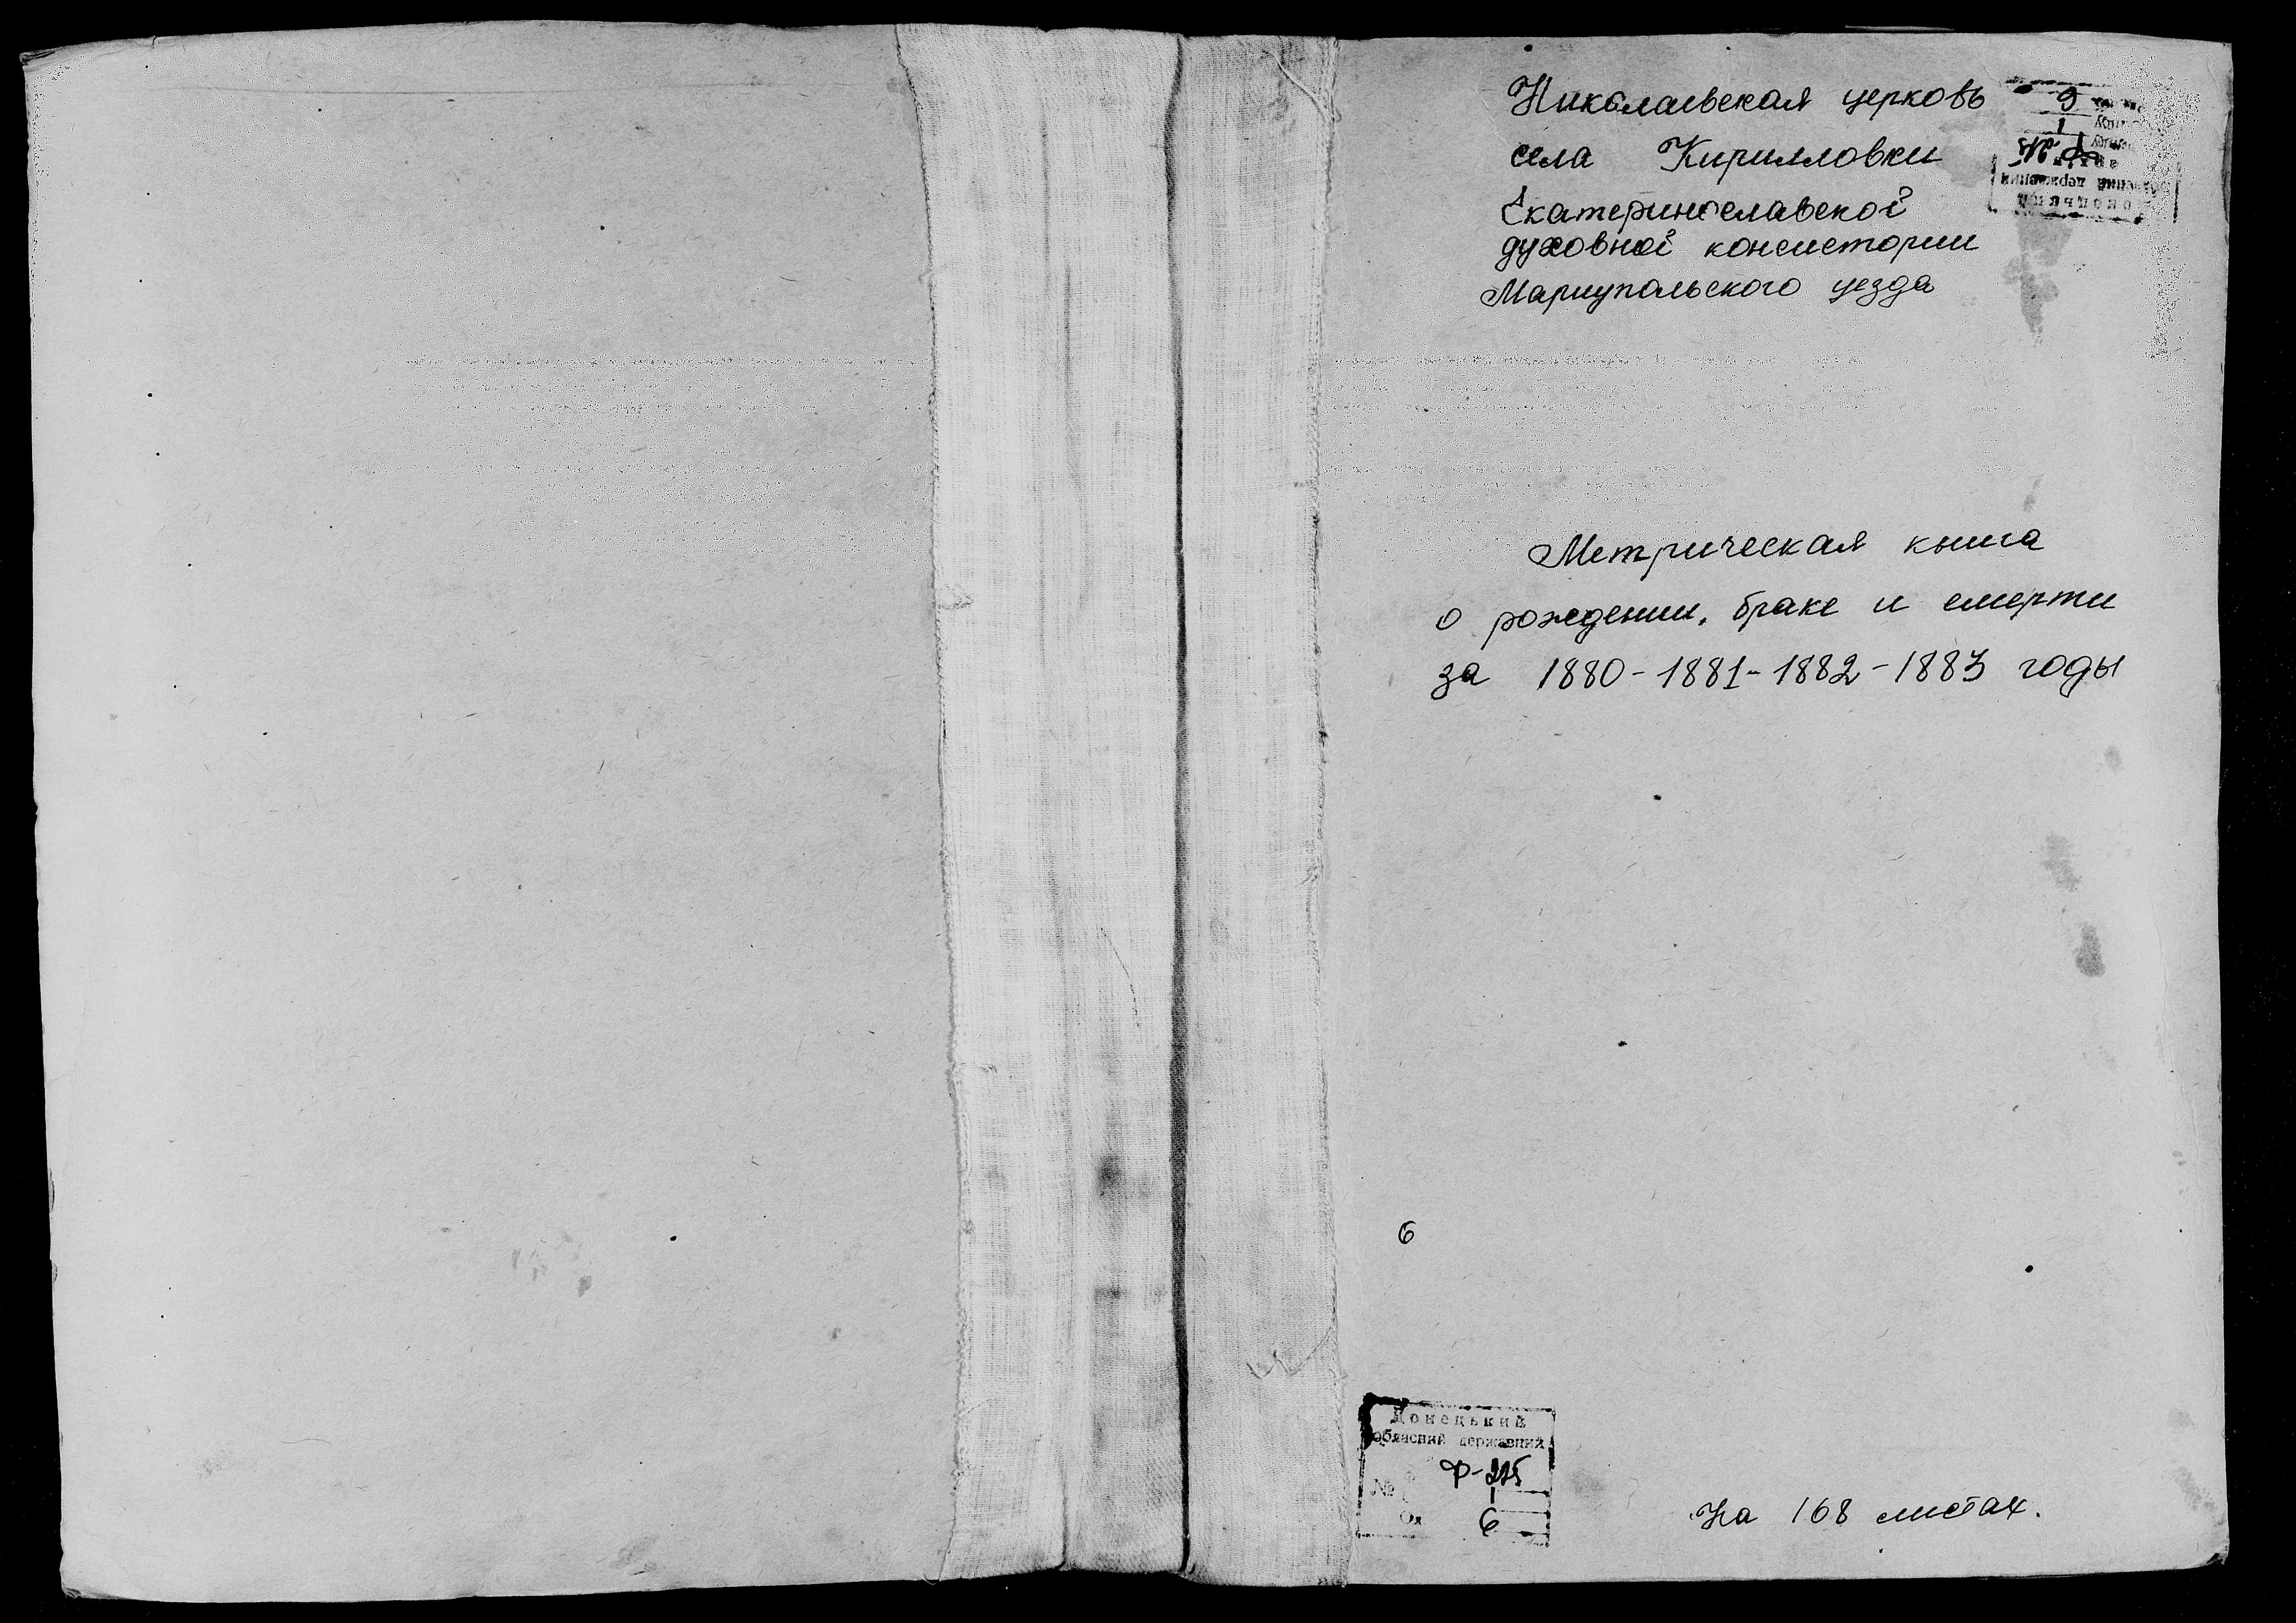 Николаевская церковь
села Кирилловки
Екатеринославской
духовной консистории
Мариупольского уезда
Метрическая книга
о рождении, браке и смерти
за 1880-1881-1882-1883 годы
6
Донецький
обласний державний
Ф-215
№ 1
6
На 168 листах.